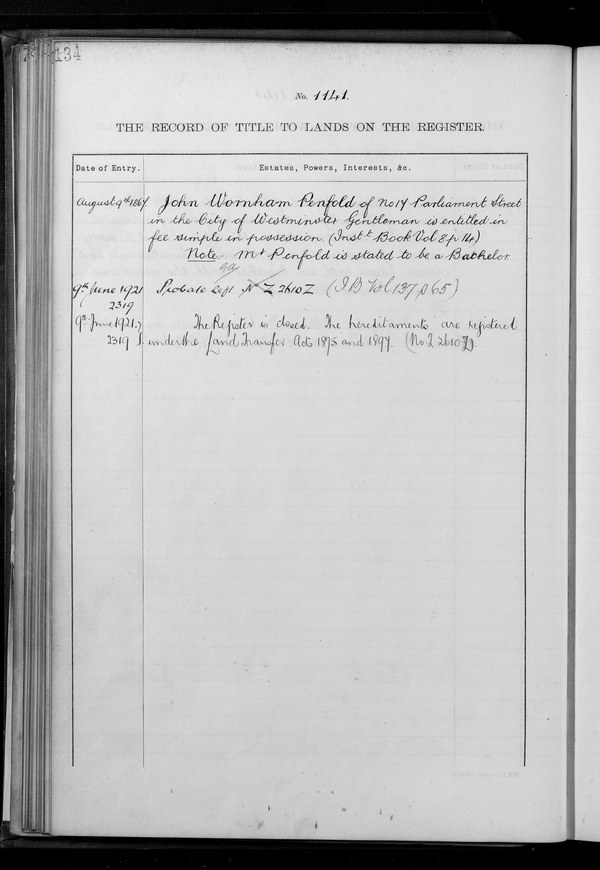 134
No. 1141.
THE RECORD OF TITLE TO LANDS ON THE REGISTER.
Date of Entry.
Estates, Powers, Interests, &c.
August 9th 1867 John Wornham Penfold of No 17 Parliament Street
in the City of Westminster Gentleman is entitled in
fee simple in possession. (Inst.t Book Vol 8. p 114)
Note:- Mr Penfold is stated to be a Bachelor
9th June 1921 Probate Z 2610 Z (I B Vol 137 p 65)
2319
9th June 1921 The Register is closed. The hereditaments are registered
2319 under the Land Transfer Acts 1875 and 1897. (No. Z 2610 Z).